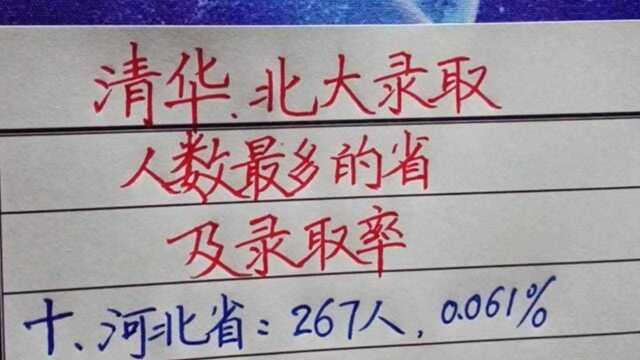 清华、北大录取
人数最多的省
及录取率
十、河北省：267人，0.061%